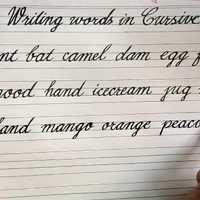 Writing words in Cursive
nt bat camel dam egg f
hand icecream jug
and mango orange peaco